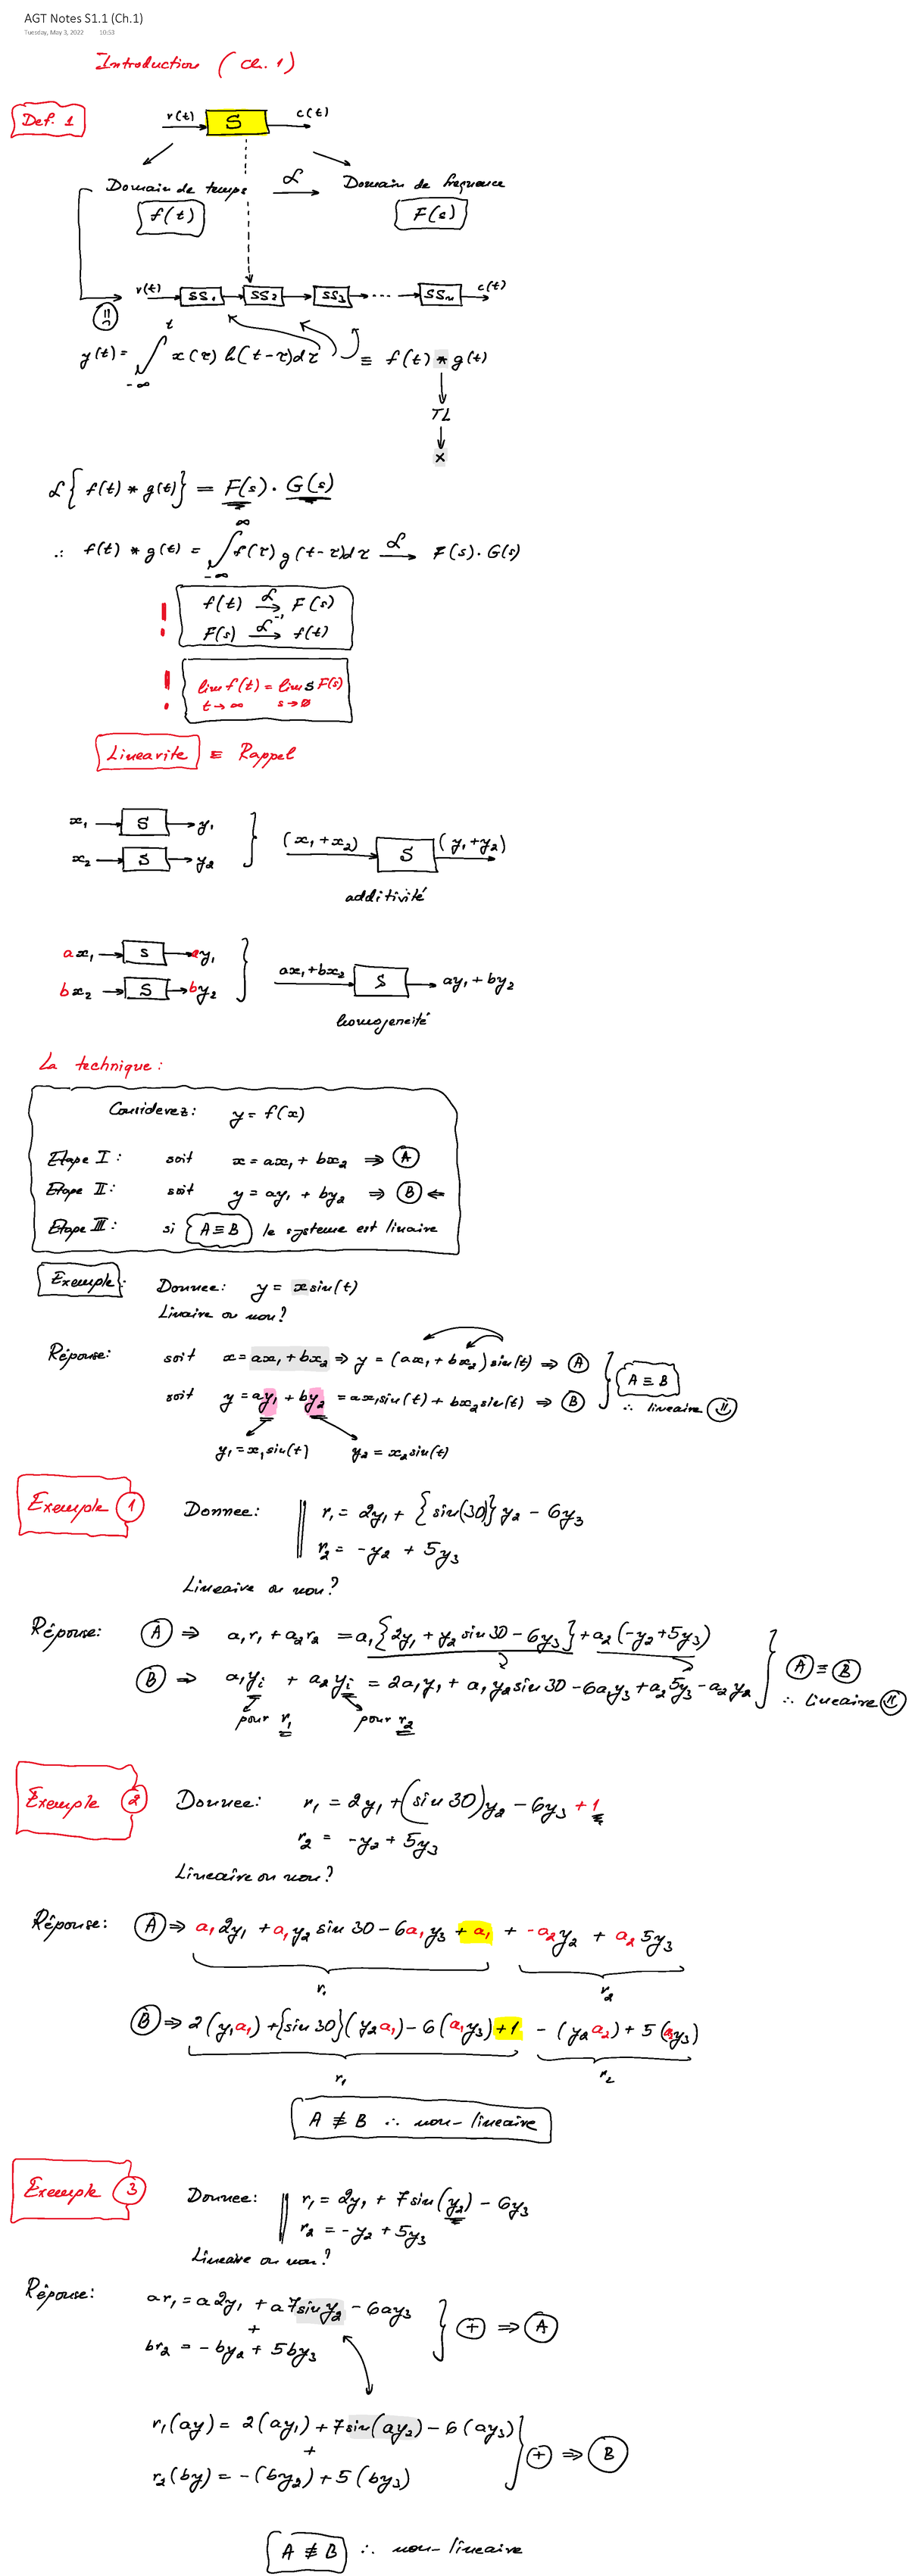 AGT Notes S1.1 (Ch.1)
Tuesday, May 3, 2022 10:53
Introduction (Ch. 1)
Def. 1
r(t) S c(t)
Domain de temps ℒ Domain de frequence
f(t) F(s)
r(t) SS₁ SS₂ SS₃ ... SSₙ c(t)
y(t) = ∫_{-∞}^{t} x(τ) h(t-τ)dτ ≡ f(t) * g(t)
TL
×
ℒ{f(t) * g(t)} = F(s) · G(s)
∴ f(t) * g(t) = ∫_{-∞}^{∞} f(τ) g(t-τ)dτ ℒ→ F(s) · G(s)
! f(t) ℒ→ F(s)
F(s) ℒ⁻¹→ f(t)
! lim f(t) = lim s F(s)
t→∞ s→0
Linearite ≡ Rappel
x₁ → S → y₁
x₂ → S → y₂
(x₁+x₂) S (y₁+y₂)
additivité
ax₁ → S → ay₁
bx₂ → S → by₂
ax₁+bx₂ S → ay₁+by₂
homogeneité
La technique:
Considerez: y = f(x)
Etape I: soit x = ax₁ + bx₂ ⇒ A
Etape II: soit y = ay₁ + by₂ ⇒ B ←
Etape III: si {A≡B} le systeme est linaire
Exemple: Donnee: y = x sin(t)
Linaire ou non?
Réponse: soit x = ax₁ + bx₂ ⇒ y = (ax₁ + bx₂) sin(t) ⇒ A
A ≡ B
soit y = ay₁ + by₂ = ax₁sin(t) + bx₂sin(t) ⇒ B
∴ lineaire
y₁ = x₁sin(t) y₂ = x₂sin(t)
Exemple 1 Donnee: r₁ = 2y₁ + {sin(30)} y₂ - 6y₃
r₂ = -y₂ + 5y₃
Lineaire ou non?
Réponse: A ⇒ a₁r₁ + a₂r₂ = a₁{2y₁ + y₂ sin 30 - 6y₃} + a₂(-y₂+5y₃)
A ≡ B
B ⇒ a₁yᵢ + a₂yᵢ = 2a₁y₁ + a₁y₂ sin 30 - 6a₁y₃ + a₂5y₃ - a₂y₂
∴ lineaire
pour r₁ pour r₂
Exemple 2 Donnee: r₁ = 2y₁ + (sin 30)y₂ - 6y₃ + 1
r₂ = -y₂ + 5y₃
Lineaire ou non?
Réponse: A ⇒ a₁2y₁ + a₁y₂ sin 30 - 6a₁y₃ + a₁ + -a₂y₂ + a₂5y₃
r₁ r₂
B ⇒ 2(y₁a₁) + {sin 30}(y₂a₁) - 6(a₁y₃) + 1 - (y₂a₂) + 5(a₂y₃)
r₁ r₂
A ≢ B ∴ non-lineaire
Exemple 3 Donnee: r₁ = 2y₁ + 7 sin(y₂) - 6y₃
r₂ = -y₂ + 5y₃
Lineaire ou non?
Réponse: ar₁ = a2y₁ + a7sin y₂ - 6ay₃
+
⊕ ⇒ A
br₂ = -by₂ + 5by₃
r₁(ay) = 2(ay₁) + 7sin(ay₂) - 6(ay₃)
+
⊕ ⇒ B
r₂(by) = -(by₂) + 5(by₃)
A ≢ B ∴ non-lineaire